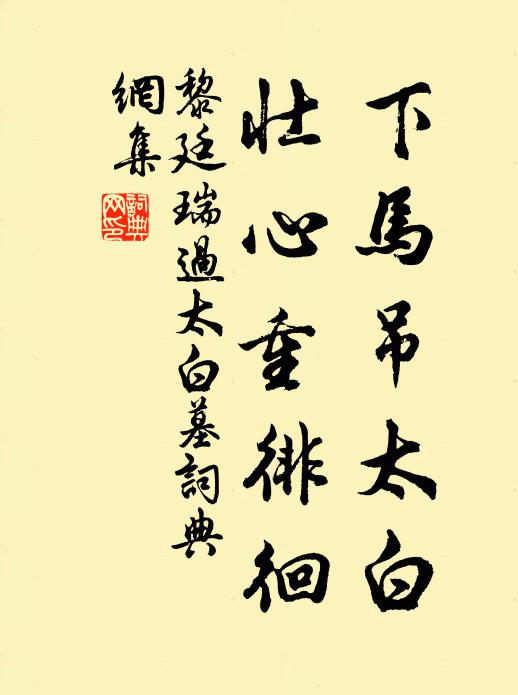 下馬吊太白
壯心重徘徊
黎廷瑞過太白墓詞典
網集
詞典
网印